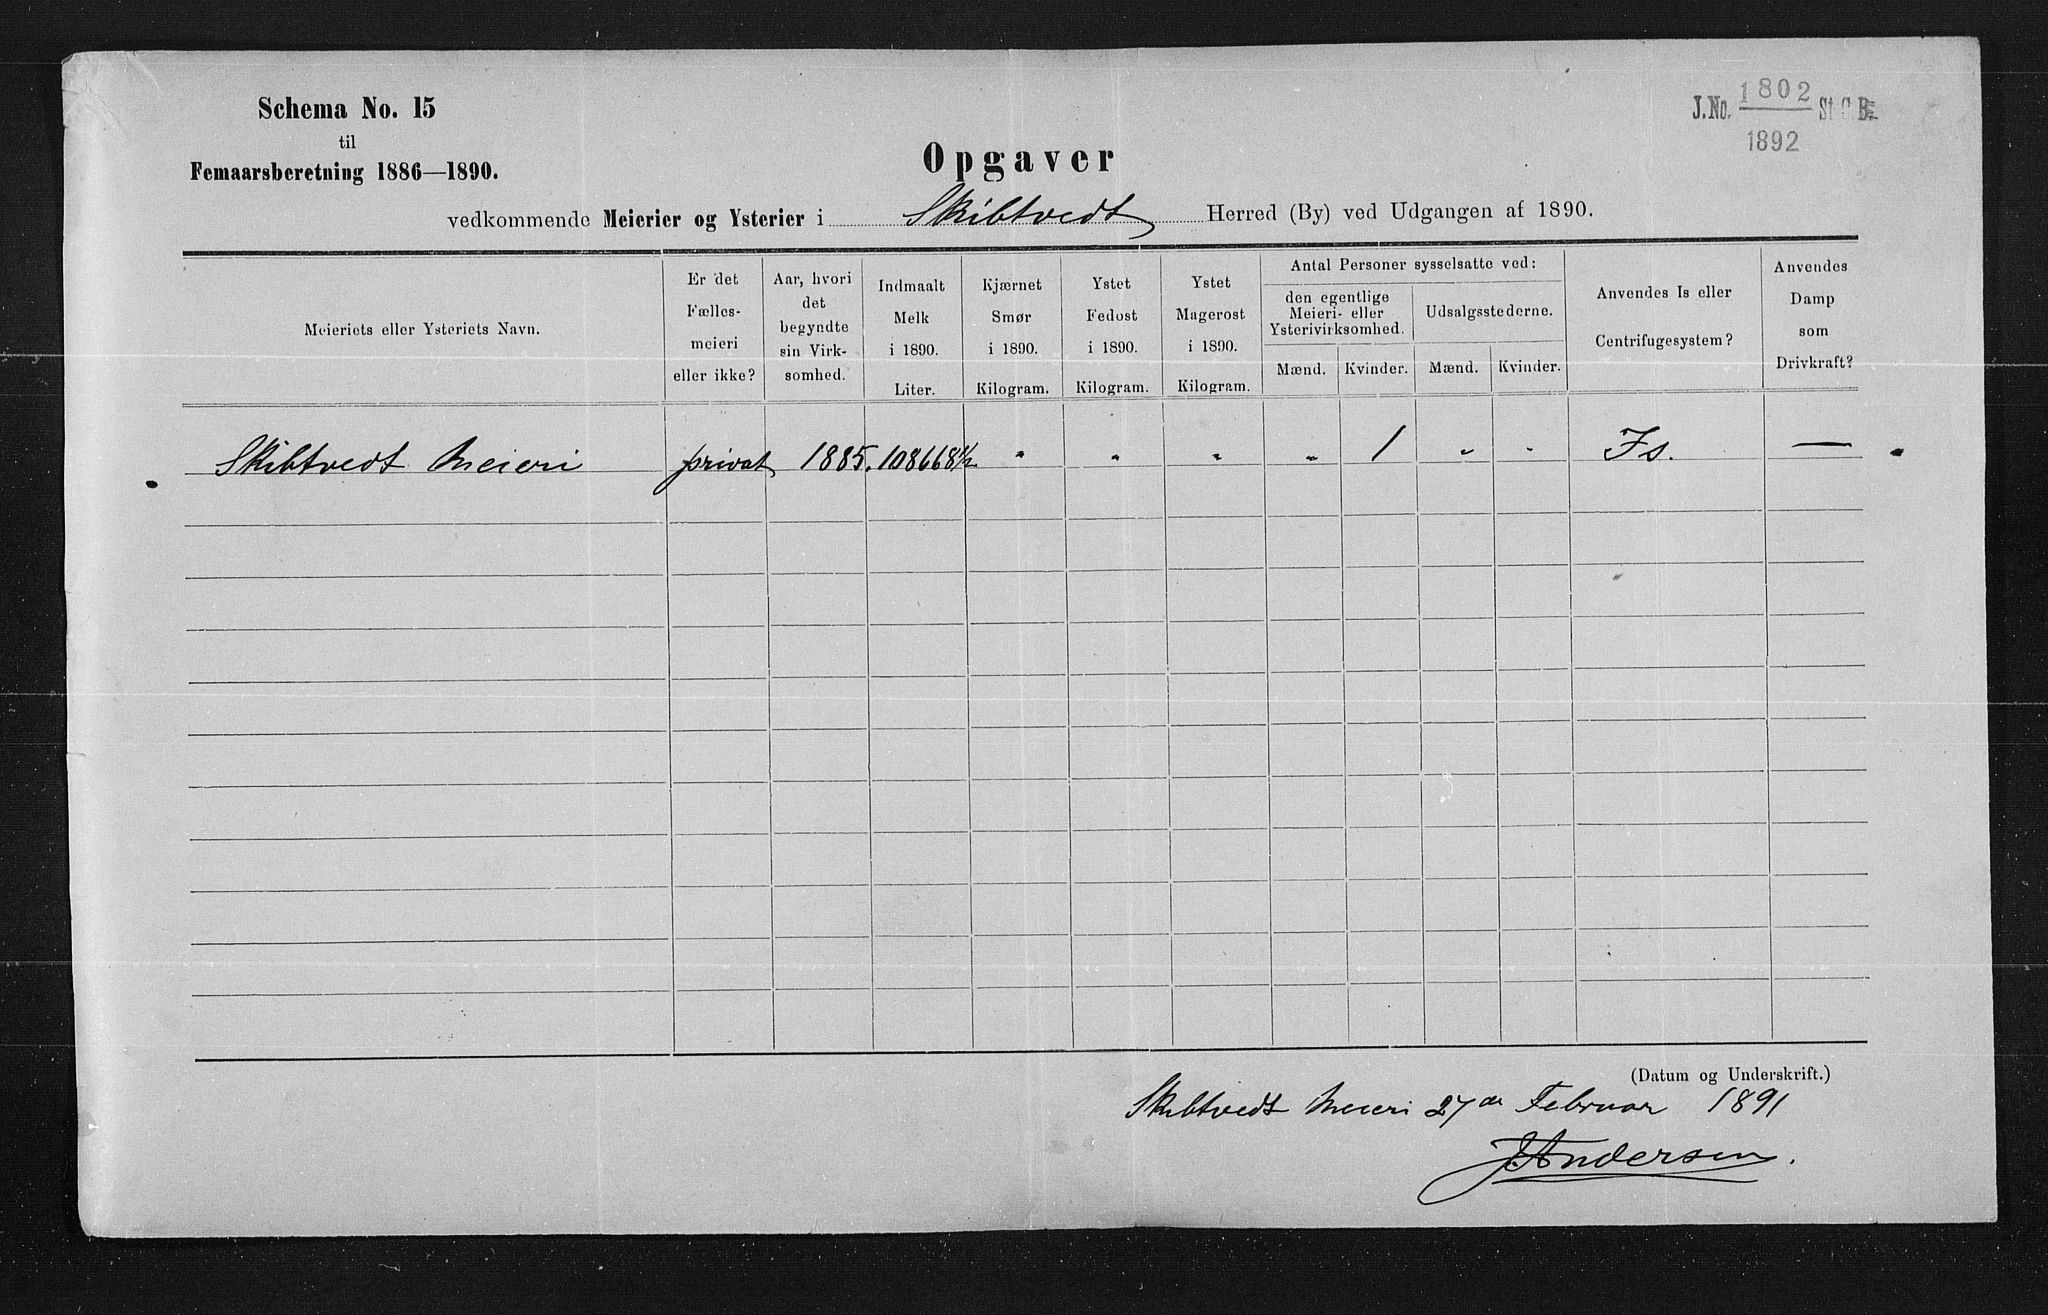 Schema No. 15
til
Femaarsberetning 1886—1890.
J.No. 1802 St C.B.
1892
Opgaver
vedkommende Meierier og Ysterier i Skibtvedt Herred (By) ved Udgangen af 1890.
Meieriets eller Ysteriets Navn.
Er det Fælles-meieri eller ikke?
Aar, hvori det begyndte sin Virk-somhed.
Indmaalt Melk i 1890. Liter.
Kjærnet Smør i 1890. Kilogram.
Ystet Fedost i 1890. Kilogram.
Ystet Magerost i 1890. Kilogram.
Antal Personer sysselsatte ved:
den egentlige Meieri- eller Ysterivirksomhed.
Mænd. Kvinder.
Udsalgsstederne.
Mænd. Kvinder.
Anvendes Is eller Centrifugesystem?
Anvendes Damp som Drivkraft?
Skibtvedt Meieri privat 1885. 108668½ " " " " 1 " " Is. —
(Datum og Underskrift.)
Skibtvedt Meieri 27de Februar 1891
J. Andersen.